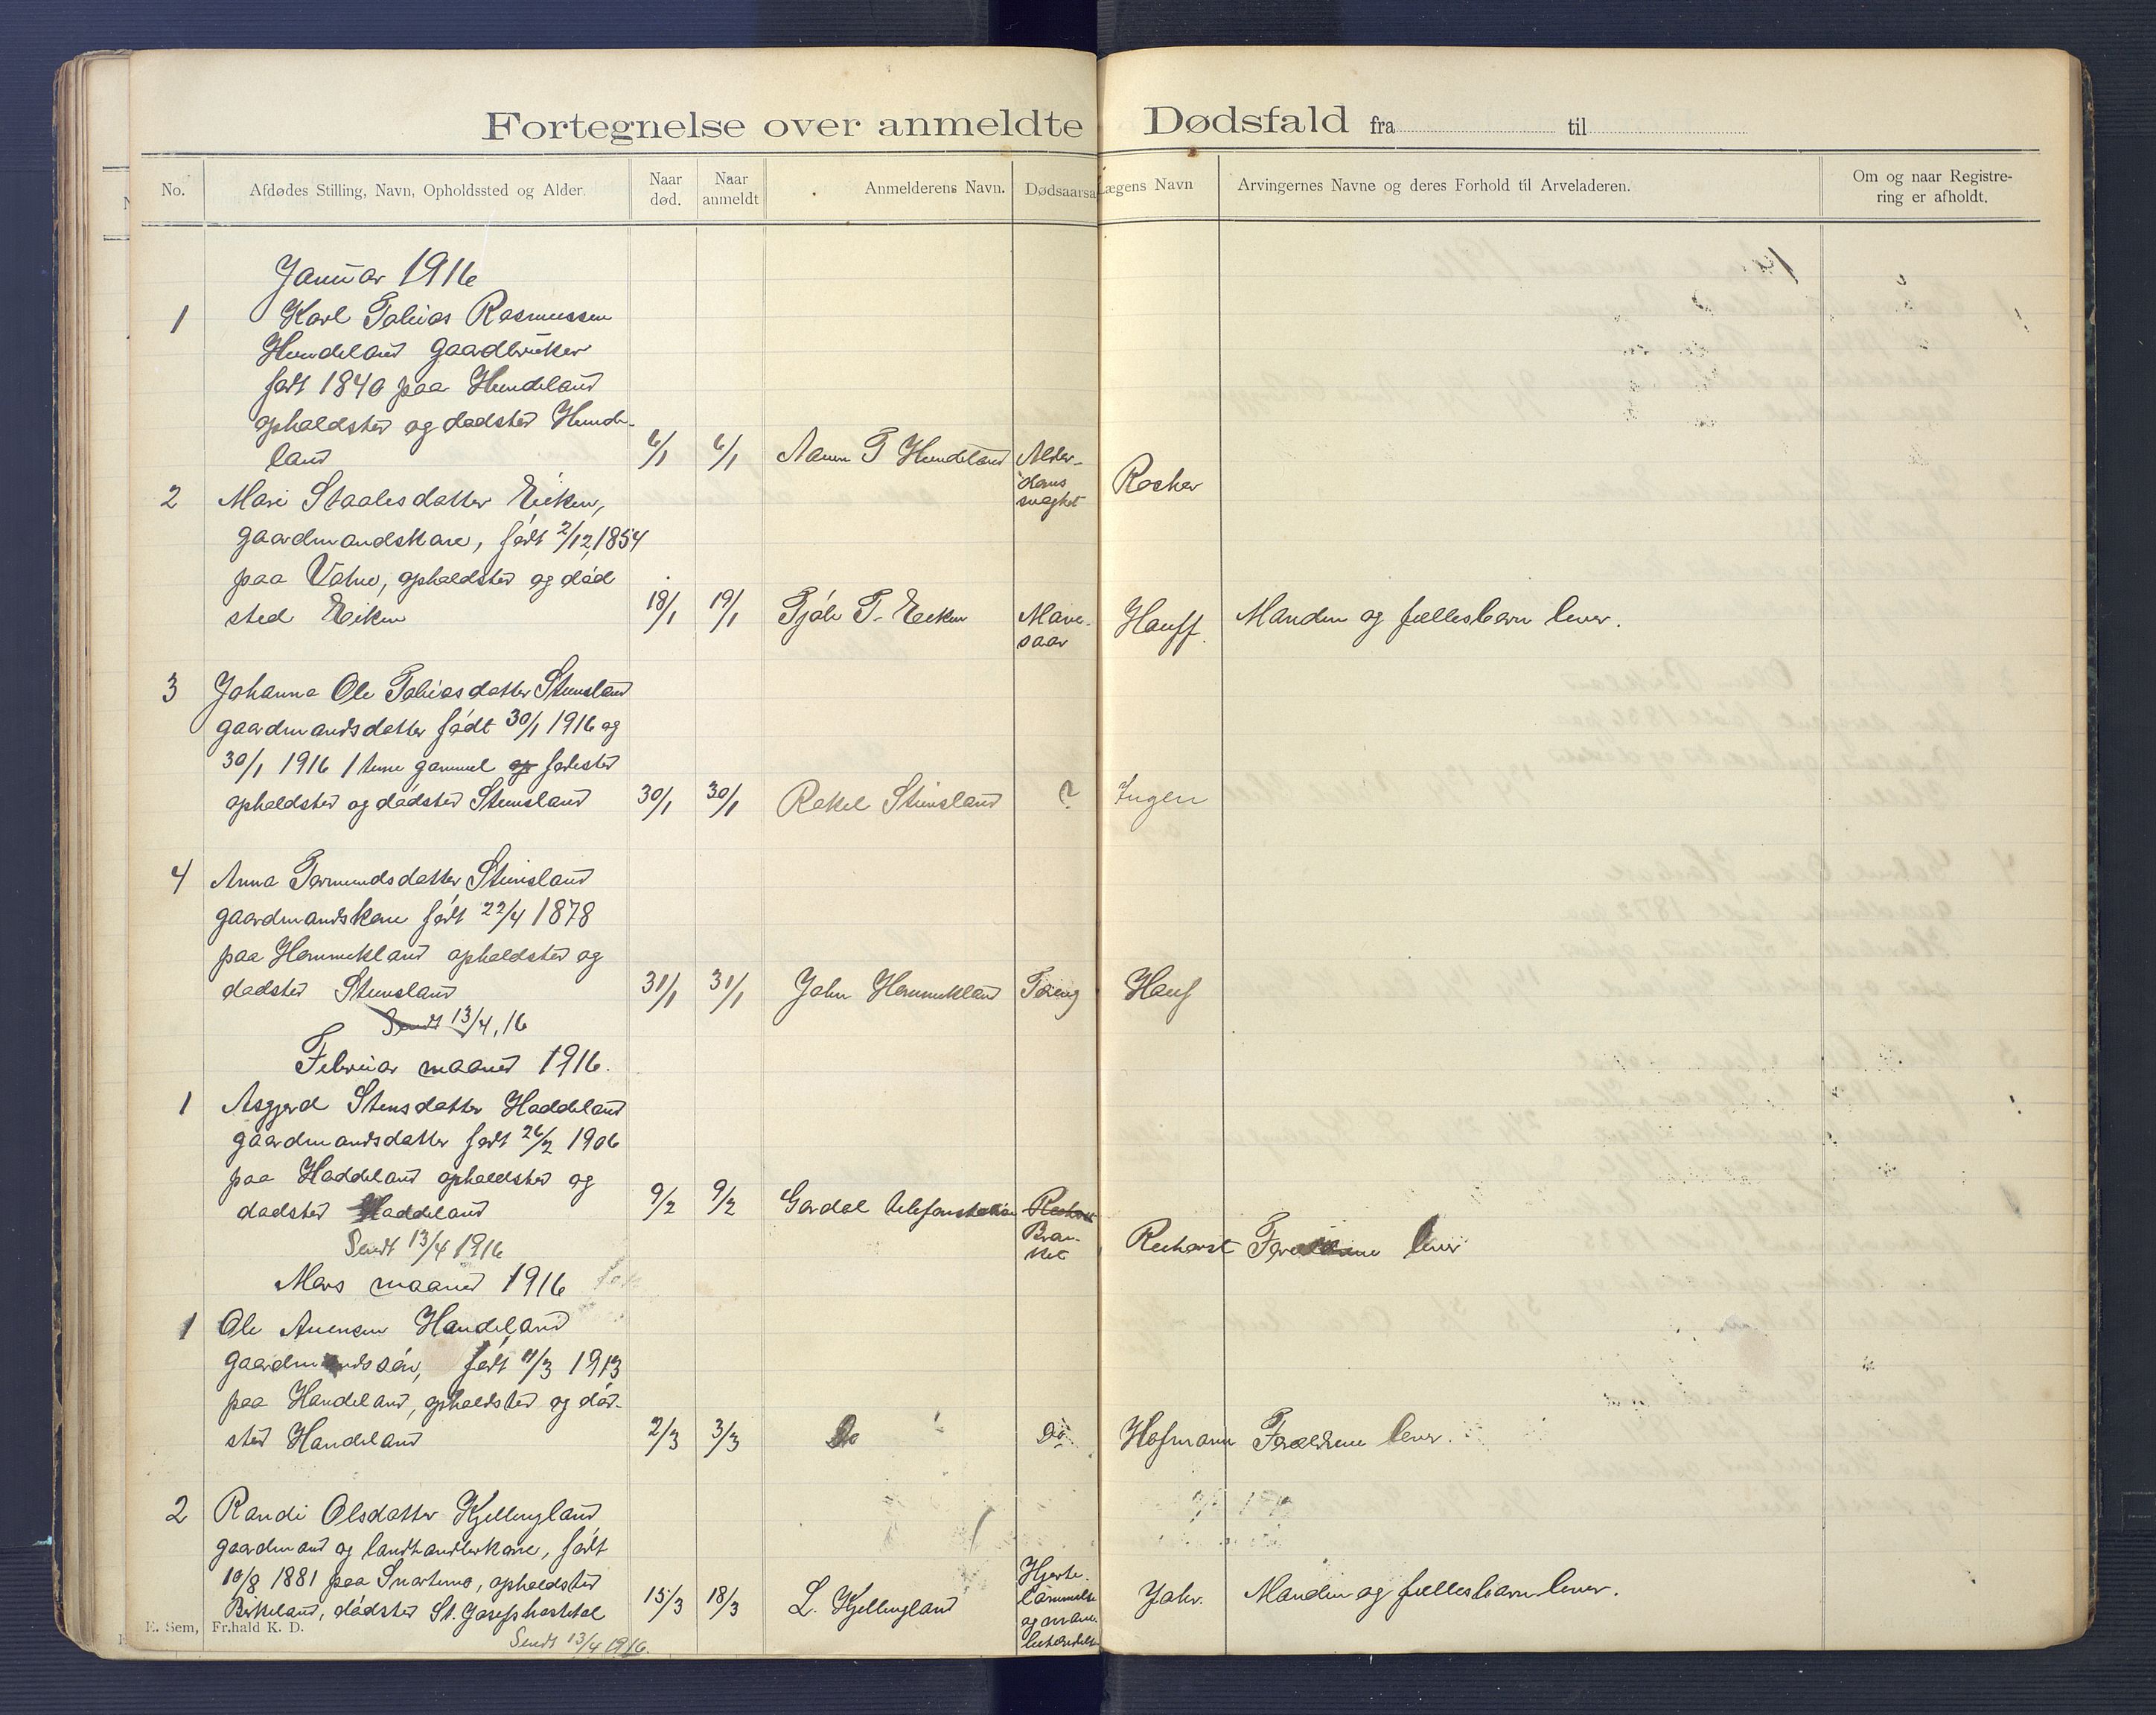 Fortegnelse over anmeldte Dødsfald fra til
No. Afdødes Stilling, Navn, Opholdssted og Alder. Naar død. Naar anmeldt Anmelderens Navn. Dødsaarsa Lægens Navn Arvingernes Navne og deres Forhold til Arveladeren. Om og naar Registre-
ring er afholdt.
Januar 1916
1 Karl Tobias Rasmussen
Hundeland gaardbruker
født 1840 paa Hundeland
opholdsted og dødsted Hunde-
land 6/1 6/1 T Hundeland Alder-
doms
svaghet Rosher
2 Mari Staalesdatter Eiken,
gaardmandskone, født 2/12 1854
paa Vatne, opholdsted og død
sted Eiken 18/1 19/1 T. Eiken Mave-
saar Hauff. Manden og fællesbarn lever.
3 Johanna Ole Tobiasdatter Stensland
gaardmandsdatter født 30/1 1916 og
30/1 1916 1 time gammel og fødested
opholdsted og dødsted Stensland 30/1 30/1 Rakel Stensland ? Ingen
4 Anna Tormundsdatter Stensland
gaardmandskone født 22/4 1878
paa Hommekland opholdsted og
dødsted Stensland 31/1 31/1 John Hommekland Tæring Hauf
Sendt 13/4, 16
Februar maaned 1916.
1 Asgjerd Stensdatter Haddeland
gaardmandsdatter født 26/2 1906
paa Haddeland opholdsted og
dødsted Haddeland 9/2 9/2 telefonstation
Bron-
kit Reehorst Forældrene lever
Sendt 13/4 1916
Mars maaned 1916
1 Ole Handeland
gaardmandssøn, født 11/3 1913
paa Handeland, opholdsted og død-
sted Handeland 2/3 3/3 Do Do Hofmann Forældrene lever.
2 Randi Olsdatter Kjellingland
gaardmand og landhandlerkone, født
10/8 1881 paa Snartemo, opholdsted
Birkeland, dødsted St. Josefs hostital 15/3 18/3 L. Kjellingland Hjerte-
lammelse
og Jahr. Manden og fællesbarn lever.
E. Sem, Fr.hald K. D.
Sendt 13/4 1916.